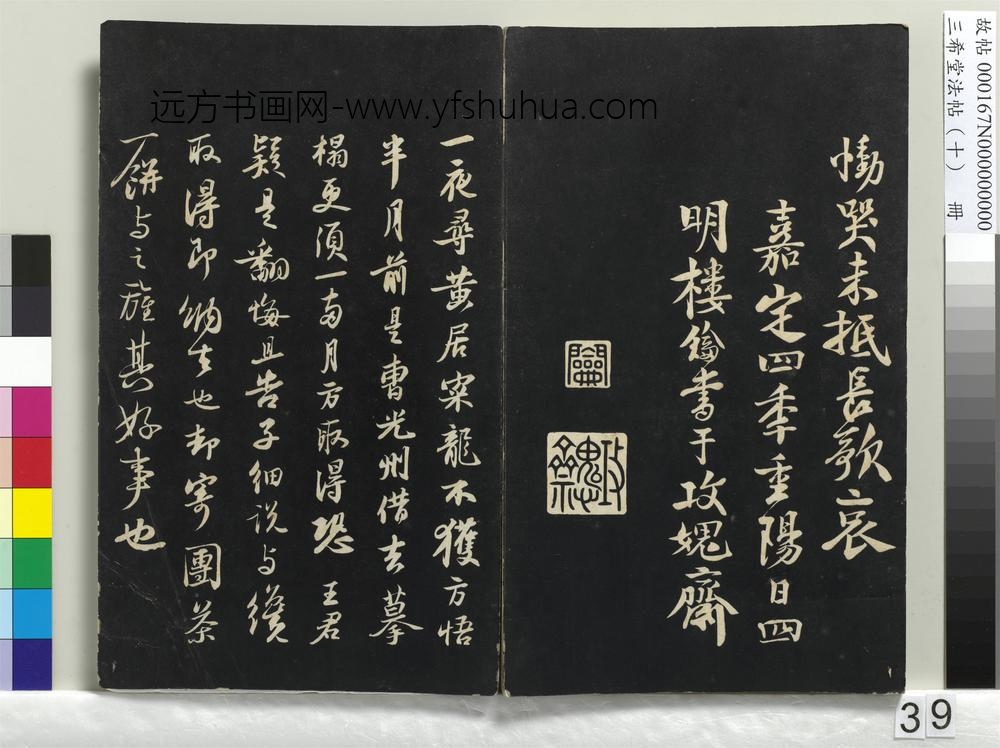 慟哭未抵長歌哀
嘉定四季重陽日四
明樓鑰書于攻媿齋
攻媿齋
一夜尋黃居寀龍不獲方悟
半月前是曹光州借去摹
榻更須一兩月方取得恐王君
疑是翻悔且告子細說与纔
取得即納去也却寄團茶
一餅与之旌其好事也
远方书画网-www.yfshuhua.com
故帖 000167N000000000
三希堂法帖(十) 冊
39